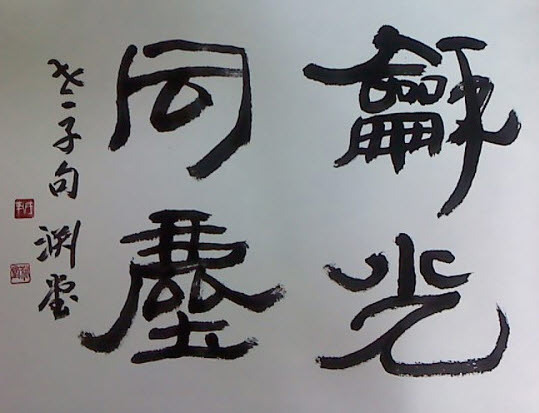 龢光
同塵
老子句 渊堂